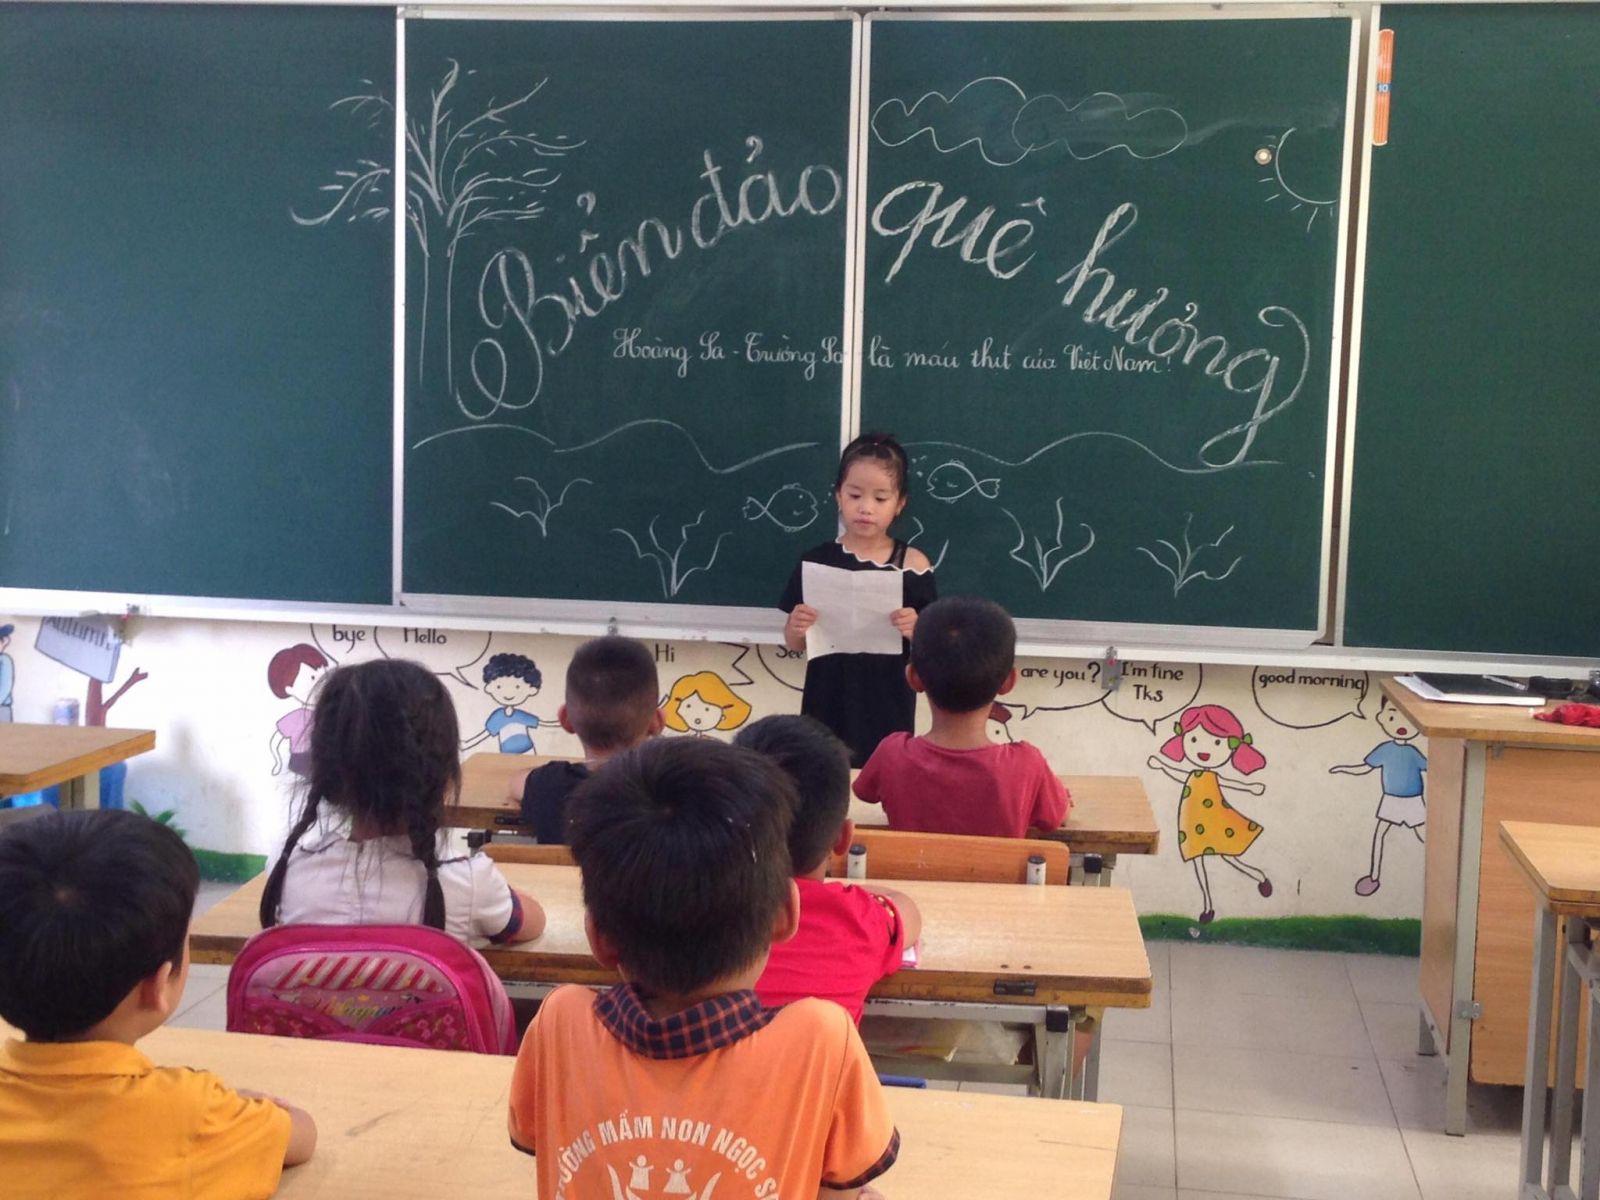 Biển đảo quê hưởng
Hoàng Sa - Trường Sa là máu thịt của Việt Nam!
10
Autumn
bye
Hello
Hi
See
are you?
I'm fine
Tks
good morning
ƯỜNG MẦM NON NGỌC S